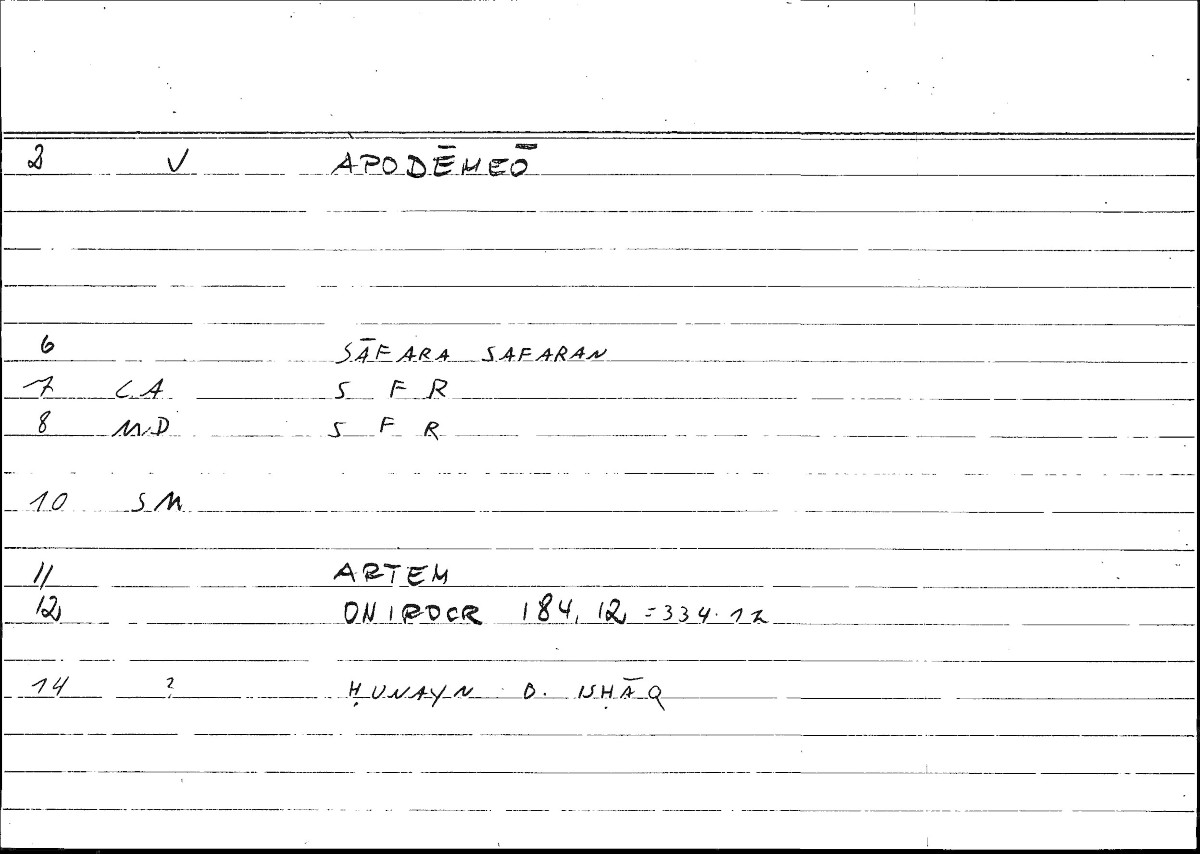 2 V APODĒMEŌ
6 SĀFARA SAFARAN
7 CA S F R
8 MD S F R
10 SM
11 ARTEM
12 ONIROCR 184, 12 = 334.12
14 ? ḤUNAYN B. ISḤĀQ